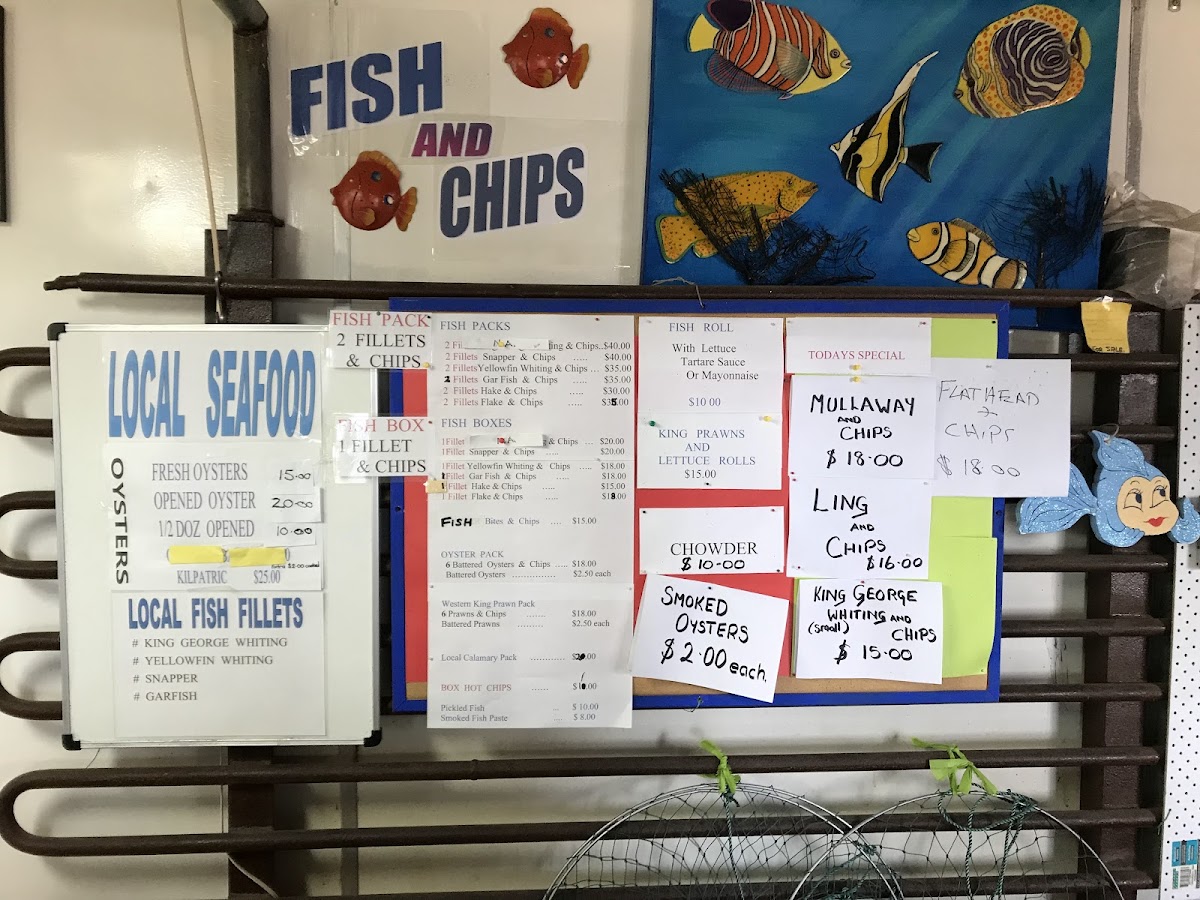 FISH
AND
CHIPS
LOCAL SEAFOOD
OYSTERS
FRESH OYSTERS 15.00
OPENED OYSTER 20.00
1/2 DOZ OPENED 10.00
KILPATRIC $25.00
LOCAL FISH FILLETS
# KING GEORGE WHITING
# YELLOWFIN WHITING
# SNAPPER
# GARFISH
FISH PACK
2 FILLETS
& CHIPS
FISH BOX
1 FILLET
& CHIPS
FISH PACKS
2 Fi N.A. ing & Chips..$40.00
2 Fillets Snapper & Chips ..... $40.00
2 Fillets Yellowfin Whiting & Chips ... $35.00
2 Fillets Gar Fish & Chips ..... $35.00
2 Fillets Hake & Chips ..... $30.00
2 Fillets Flake & Chips ..... $35.00
FISH BOXES
1Fillet NA & Chips ... $20.00
1Fillet Snapper & Chips ..... $20.00
1Fillet Yellowfin Whiting & Chips ..... $18.00
Fillet Gar Fish & Chips ...... $18.00
Fillet Hake & Chips ...... $15.00
1Fillet Flake & Chips ...... $18.00
FISH Bites & Chips .... $15.00
OYSTER PACK
6 Battered Oysters & Chips ..... $18.00
Battered Oysters ............... $2.50 each
Western King Prawn Pack
6 Prawns & Chips ........ $18.00
Battered Prawns ......... $2.50 each
Local Calamary Pack ............ $20.00
BOX HOT CHIPS ...... $10.00
Pickled Fish .. $ 10.00
Smoked Fish Paste ... $ 8.00
FISH ROLL
With Lettuce
Tartare Sauce
Or Mayonnaise
$10 00
KING PRAWNS
AND
LETTUCE ROLLS
$15.00
CHOWDER
$10-00
SMOKED
OYSTERS
$2.00 each.
TODAYS SPECIAL
MULLAWAY
AND
CHIPS
$18.00
LING
AND
CHIPS
$16.00
KING GEORGE
WHITING AND
(small) CHIPS
$15.00
FLATHEAD
+
CHIPS
$18.00
FOR SALE